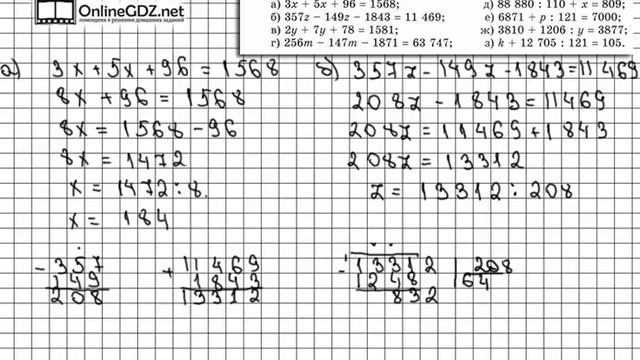 OnlineGDZ.net
помощник в решении домашних заданий
а) 3x + 5x + 96 = 1568;
б) 357z − 149z − 1843 = 11 469;
в) 2y + 7y + 78 = 1581;
г) 256m − 147m − 1871 = 63 747;
д) 88 880 : 110 + x = 809;
е) 6871 + p : 121 = 7000;
ж) 3810 + 1206 : y = 3877;
з) k + 12 705 : 121 = 105.
а) 3x + 5x + 96 = 1568
8x + 96 = 1568
8x = 1568 - 96
8x = 1472
x = 1472 : 8.
x = 184
б) 357z - 149z - 1843 = 11469
208z - 1843 = 11469
208z = 11469 + 1843
208z = 13312
z = 13312 : 208
- 357
149
208
+ 11469
1843
13312
- 13312 | 208
1248 | 64
832